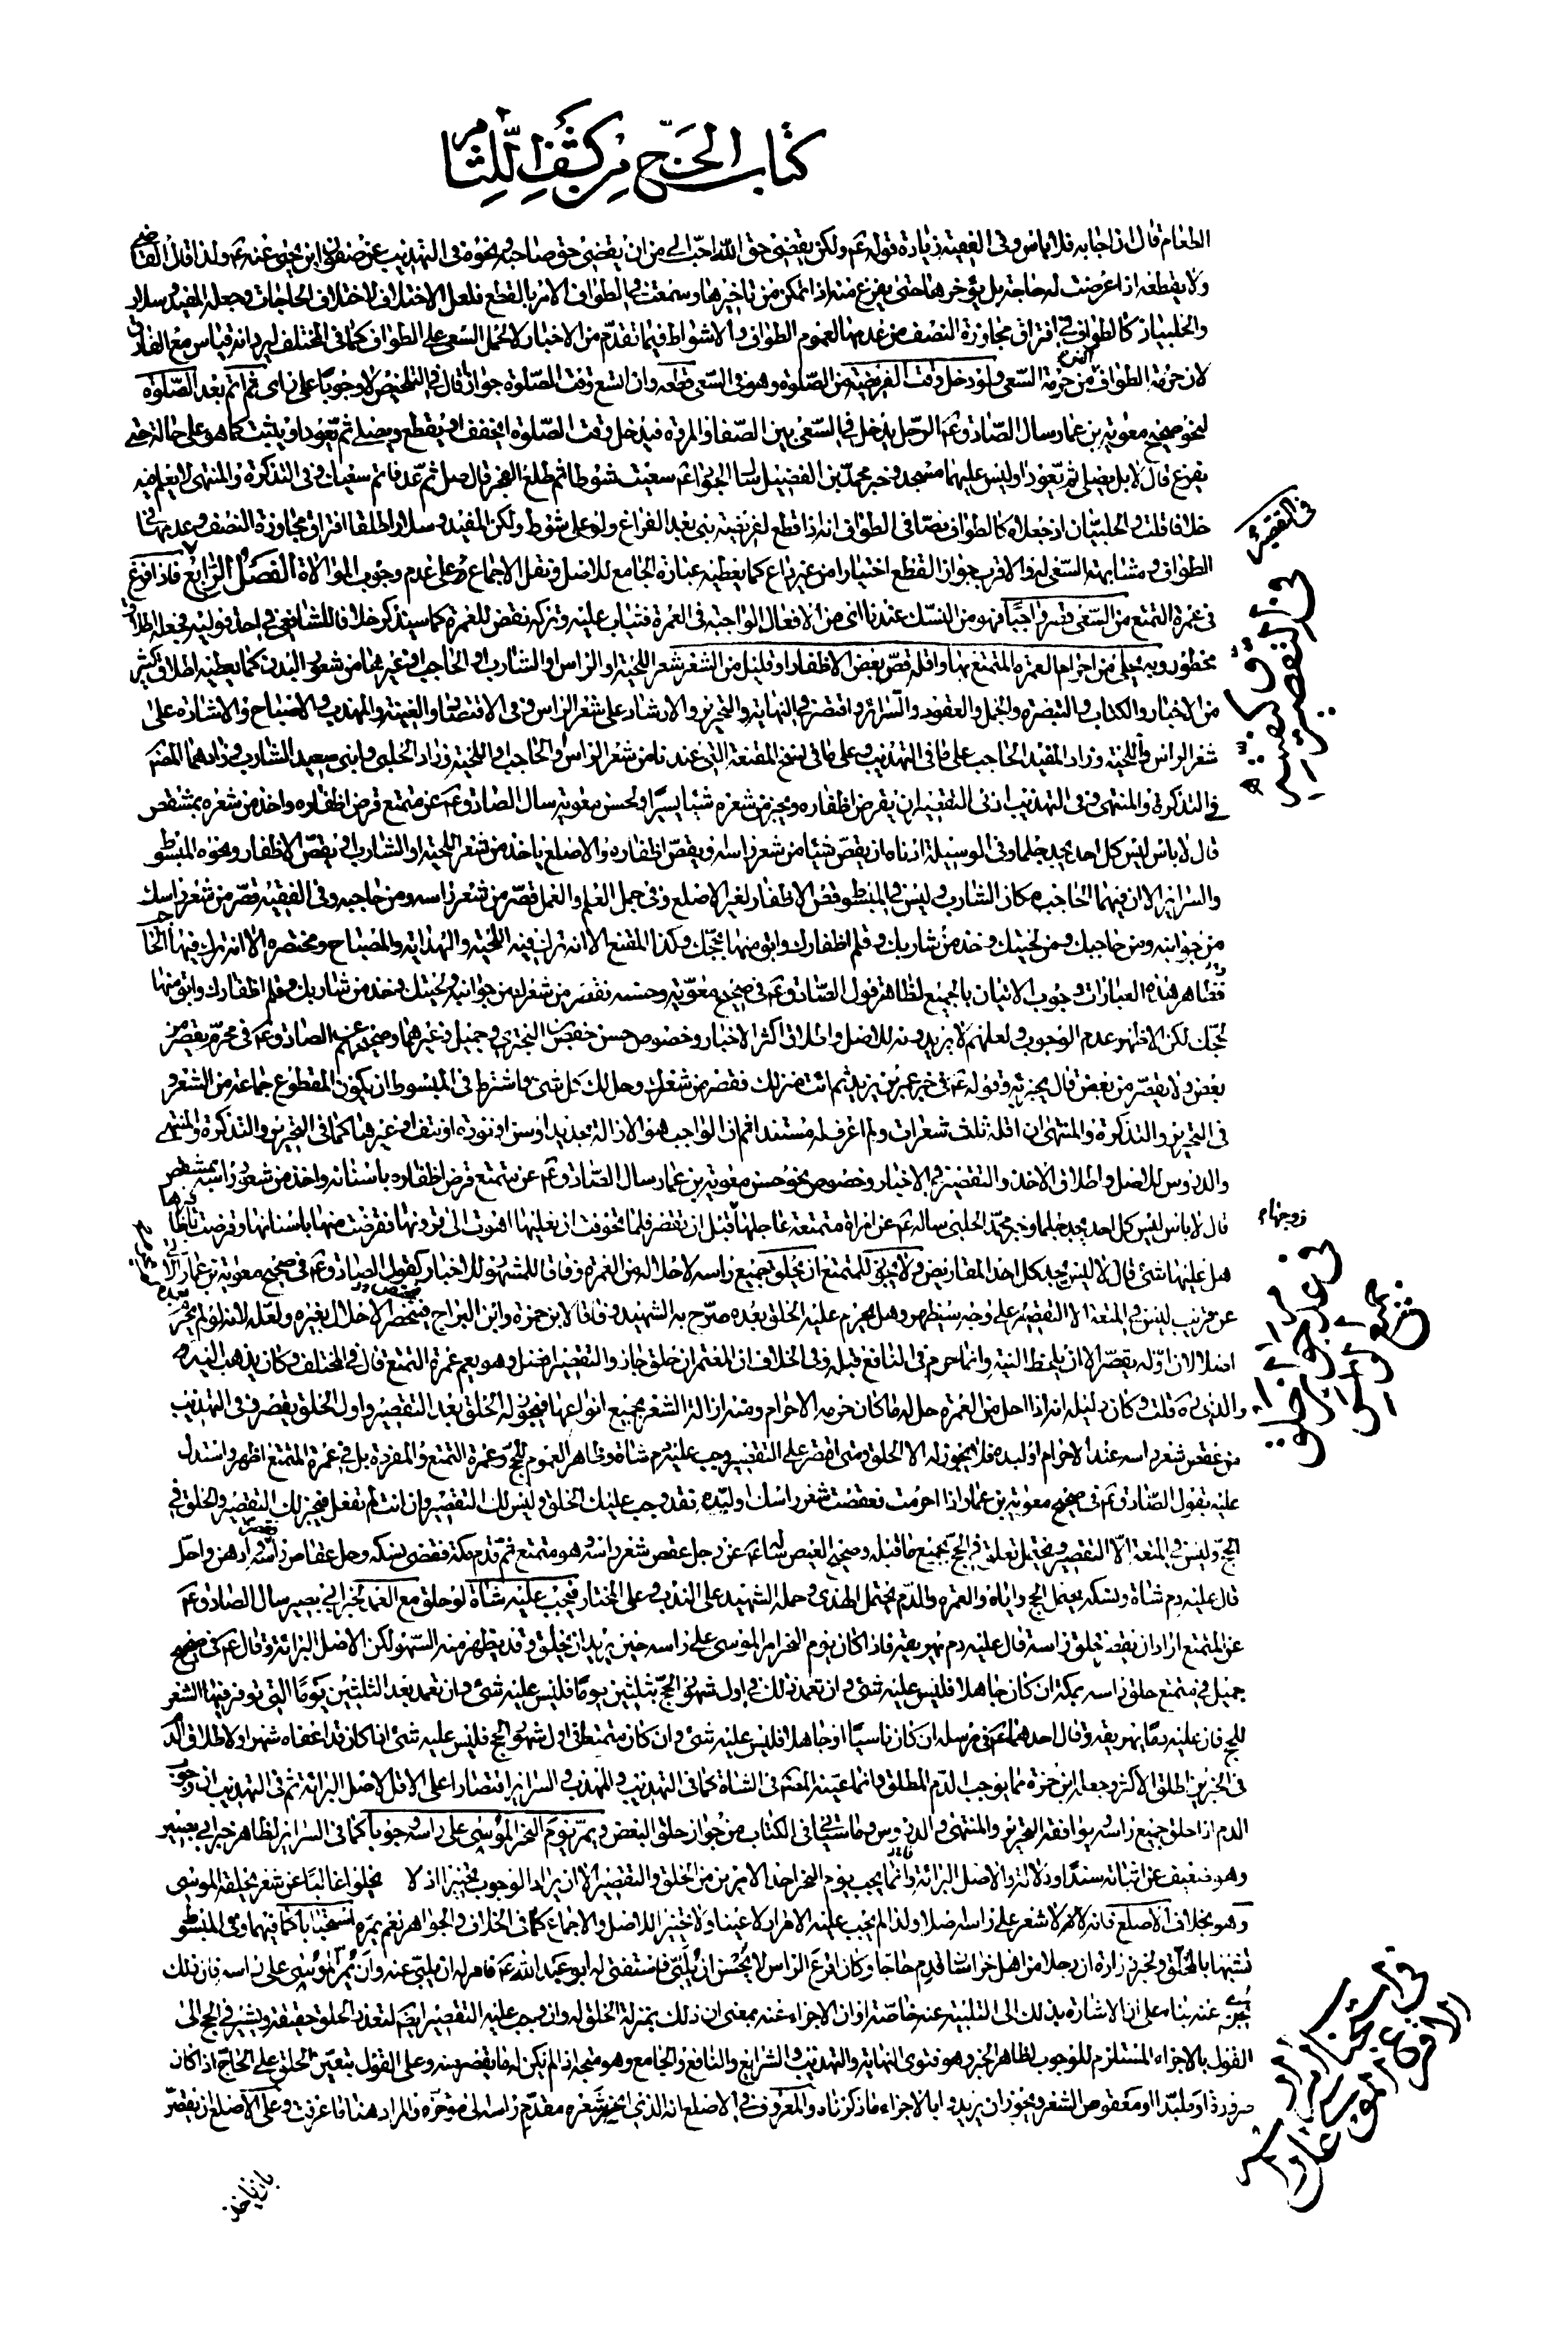 كتاب الحج من كشف اللثام
الطعام قال ان اجابه فلا باس وفى الفقيه زيادة قوله ع ولكن يقضى حق الله احب الى من ان يقضى حق صاحبه ونحوه فى التهذيب عن صفوان ابن يحيى عنه ع ولذا قال القاضى
ولا يقطعه اذا عرضت له حاجة بل يؤخرها حتى يفرغ منه اذا تمكن من تاخيرها وسمعت فى الطواف الامر بالقطع فلعل الاختلاف لاختلاف الحاجات وجعله المفيد وسلار
والحلبيان كالطواف فى افتراق مجاوزة النصف من عدمها لعموم الطواف والاشواط فيما تقدم من الاخبار لا لحمل السعى على الطواف كما فى المختلف ليرد انه قياس مع الفارق
لان حرمة الطواف اكثر من حرمة السعى ولو دخل وقت الفريضة من الصلوة وهو فى السعى قطعه وان اتسع وقت الصلوة جوازا قال فى التلخيص لا وجوبا على راى ثم اتم بعد الصلوة
لنحو صحيح معوية بن عمار سال الصادق ع الرجل يدخل فى السعى بين الصفا والمروة فيدخل وقت الصلوة ايخفف او يقطع ويصلى ثم يعود او يثبت كما هو على حاله حتى
يفرغ قال لا بل يصلى ثم يعود اوليس عليهما مسجد وخبر محمد بن الفضيل سال الجواد ع سعيت شوطا ثم طلع الفجر قال صل ثم عد فاتم سعيك وفى التذكرة والمنتهى لا يعلم فيه
خلافا قلت والحلبيان اذ جعلاه كالطواف نصا فى الطواف انه اذا قطع لفريضة بنى بعد الفراغ ولو على شوط ولكن المفيد وسلار اطلقا افتراق مجاوزة النصف وعدمها فى
الطواف ومشابهة السعى له والاقرب جواز القطع اختيارا من غير داع كما يعطيه عبارة الجامع للاصل ونقل الاجماع على عدم وجوب الموالاة الفصل الرابع فاذا فرغ
فى عمرة التمتع من السعى قصر واجبا فهو من النسك عندنا اى من الافعال الواجبة فى العمرة فيثاب عليه وتركه نقص للعمرة كما سيذكر خلافا للشافعى فى احد قوليه فجعله اطلاق
محظور وبه يحل من احرام العمرة المتمتع بها واقله قص بعض الاظفار او قليل من الشعر شعر اللحية او الراس او الشارب او الحاجب او غيرها من شعور البدن كما يعطيه اطلاق كثير
من الاخبار والكتاب والتبصرة والجمل والعقود والسرائر واقتصر فى النهاية والتحرير والارشاد على شعر الراس وفى الاقتصاد والغنية والمهذب والاصباح والاشارة على
شعر الراس واللحية وزاد المفيد الحاجب على ما فى التهذيب وعلى ما فى نسخ المقنعة التى عندنا من شعر الراس والحاجب او اللحية وزاد الحلبى وابنى سعيد الشارب وزادهما المصنف
فى التذكرة والمنتهى وفى التهذيب ادنى التقصير ان يقرض اظفاره ويجز من شعره شيئا يسيرا ولحسن معوية سال الصادق ع عن متمتع قرض اظفاره واخذ من شعره بمشقص
قال لا باس ليس كل احد يجد جلما وفى الوسيلة ادناه ان يقص شيئا من شعر راسه ويقص اظفاره والاصلع ياخذ من شعر اللحية او الشارب او يقص الاظفار ونحوه المبسوط
والسرائر الا ان فيهما الحاجب مكان الشارب وليس فى المبسوط قص الاظفار لغير الاصلع وفى جمل العلم والعمل قصر من شعر راسه ومن حاجبه وفى الفقيه قصر من شعر راسك
من جوانبه ومن حاجبيك ومن لحيتك وخذ من شاربك وقلم اظفارك وابق منها لحجك وكذا المقنع الا انه ترك فيه اللحية والهداية والمصباح ومختصره الا انه ترك فيها الحاجب
فظاهر هذه العبارات وجوب الاتيان بالجميع لظاهر قول الصادق ع فى صحيح معوية وحسنه تقصر من شعرك من جوانبه ولحيتك وخذ من شاربك وقلم اظفارك وابق منها
لحجك لكن الاظهر عدم الوجوب ولعلهم لا يريدونه للاصل واطلاق اكثر الاخبار وخصوص حسن حفص بن البخترى وجميل وغيرهما وصحيحهم عن الصادق ع فى محرم يقصر من
بعض ولا يقصر من بعض قال يجزيه وقوله ع فى خبر عمر بن يزيد ثم ائت منزلك فقصر من شعرك وحل لك كل شئ واشترط فى المبسوط ان يكون المقطوع جماعة من الشعر و
فى التحرير والتذكرة والمنتهى ان اقله ثلث شعرات ولم اعرف له مستندا ثم ان الواجب هو الازالة بحديد او سن او نورة او نتف او غيرها كما فى التحرير والتذكرة والمنتهى
والدروس للاصل واطلاق الاخذ والتقصير فى الاخبار وخصوص نحو حسن معوية بن عمار سال الصادق ع عن متمتع قرض اظفاره باسنانه واخذ من شعر راسه بمشقص
قال لا باس ليس كل احد يجد جلما وخبر محمد الحلبى ساله ع عن امراة متمتعة عاجلها زوجها قبل ان تقصر فلما تخوفت ان يغلبها اهوت الى قرونها فقرضت منها باسنانها وقرضت باظافيرها
هل عليها شئ قال لا ليس يجد كل احد المقاريض ولا يجوز للمتمتع ان يحلق جميع راسه لاحلاله من العمرة وفاقا للمشهور للاخبار كقول الصادق ع فى صحيح معوية بن عمار الاتى
عن قريب ليس فى المتعة الا التقصير على وجه سيظهر وهل يحرم عليه الحلق بعده صرح به الشهيد وفاقا لابن حمزة وابن البراج فينحصر الاحلال بغيره ولعله لانه لو لم يحرم
اصلا لان اوله يقصر الا ان يلحظ النية وانما حرم فى النافع قبله وفى الخلاف ان المعتمر ان حلق جاز والتقصير افضل وهو يعم عمرة التمتع قال فى المختلف وكان يذهب اليه
والدى ره قلت وكان دليله انه اذا احل من العمرة حل له ما كان حرمه الاحرام ومنه ازالة الشعر بجميع انواعها فيجوز له الحلق بعد التقصير واول الحلق يقصر وفى التهذيب
من عقص شعر راسه عند الاحرام او لبده فلا يجوز له الا الحلق ومتى اقتصر على التقصير وجب عليه دم شاة وظاهر العموم للحج وعمرة التمتع والمفردة بل فى عمرة المتمتع اظهر واستدل
عليه بقول الصادق ع فى صحيح معوية بن عمار اذا احرمت فعقصت شعر راسك او لبدته فقد وجب عليك الحلق وليس لك التقصير وان انت لم تفعل فمخير لك التقصير والحلق فى
الحج وليس فى المتعة الا التقصير ويحتمل تعلق فى الحج بجميع ما قبله وصحيح العيص ساله ع عن رجل عقص شعر راسه وهو متمتع ثم قدم مكة فقضى نسكه وحل عقاص راسه فقصر وادهن واحل
قال عليه دم شاة ونسكه يحتمل الحج واياه والعمرة والدم يحتمل الهدى وحمله الشهيد على الندب وعلى المختار فيجب عليه شاة لو حلق مع العمد لخبر ابى بصير سال الصادق ع
عن المتمتع اراد ان يقصر فحلق راسه قال عليه دم يهريقه فاذا كان يوم النحر امر الموسى على راسه حين يريد ان يحلق وقد يظهر منه السهو لكن الاصل البرائة وقال ع فى صحيح
جميل فى متمتع حلق راسه بمكة ان كان جاهلا فليس عليه شئ وان تعمد ذلك فى اول شهور الحج بثلثين يوما فليس عليه شئ وان تعمد بعد الثلثين يوما التى توفر فيها الشعر
للحج فان عليه دما يهريقه وقال احدهما ع فى مرسله ان كان ناسيا او جاهلا فليس عليه شئ وان كان متمتعا فى اول شهور الحج فليس عليه شئ اذا كان قد اعفاه شهرا ولاطلاق الدم
فى الخبرين اطلق الاكثر وجعله ابن حمزة مما يوجب الدم المطلق وانما عينه المصنف فى الشاة كما فى التهذيب والمهذب والسرائر اقتصارا على الاقل لاصل البرائة ثم فى التهذيب ان وجوب
الدم اذا حلق جميع راسه ويوافقه التحرير والمنتهى والدروس وما سياتى فى الكتاب من جواز حلق البعض ويمر يوم النحر الموسى على راسه وجوبا كما فى السرائر لظاهر خبر ابى بصير
وهو ضعيف عن اثباته سندا ودلالة والاصل البرائة وانما يجب يوم النحر احد الامرين من الحلق والتقصير الا ان يراد الوجوب تخييرا اذ لا يخلو غالبا عن شعر يحلقه الموسى
وهو بخلاف الاصلع فانه لا شعر على راسه اصلا ولذا لم يجب عليه الامرار لا عينا ولا تخييرا للاصل والاجماع كما فى الخلاف والجواهر نعم يمره استحبابا كما فيهما وفى المبسوط
تشبها بالحلق ولخبر زرارة ان رجلا من اهل خراسان قدم حاجا وكان اقرع الراس لا يحسن ان يلبى فاستفتى له ابو عبد الله ع فامر له ان يلبى عنه وان يمر الموسى على راسه فان ذلك
يجزى عنه بناء على ان الاشارة بذلك الى التلبية عنه خاصة او ان الاجزاء عنه بمعنى ان ذلك بمنزلة الحلق له وان وجب عليه التقصير ايضا لتعذر الحلق حقيقة ويشير فى الحج الى
القول بالاجزاء المستلزم للوجوب لظاهر الخبر وهو فتوى النهاية والتهذيب والشرايع والنافع والجامع وهو متجه اذا لم يكن له ما يقصر منه وعلى القول بتعين الحلق على الحاج اذا كان
صرورة او ملبدا او معقوص الشعر ويجوز ان يريدوا بالاجزاء ما ذكرناه والمعروف فى الاصلع انه الذى انحسر شعره مقدم راسه الى مؤخره والمراد هنا ما عرفت وعلى الاصلع ان يقصر
بان ياخذ